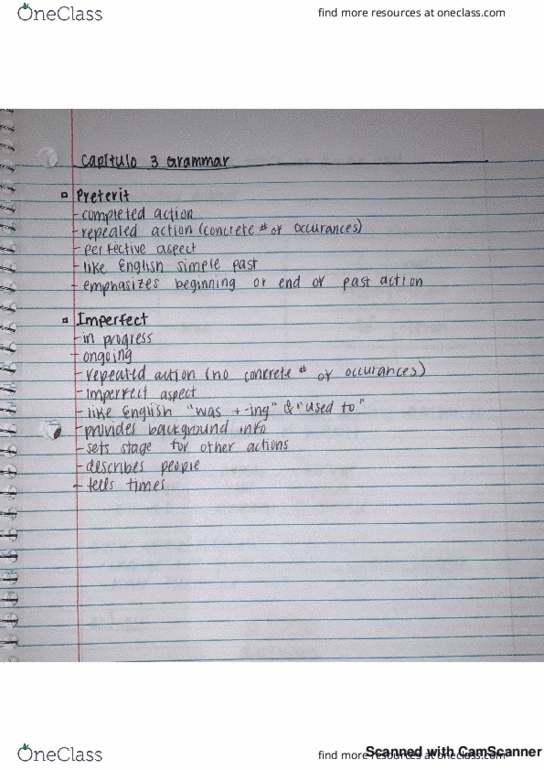 OneClass
find more resources at oneclass.com
Capítulo 3 Grammar
Preterit
- completed action
- repeated action (concrete # of occurances)
- perfective aspect
- like English simple past
- emphasizes beginning or end of past action
Imperfect
- in progress
- ongoing
- repeated action (no concrete # of occurances)
- imperfect aspect
- like English "was + -ing" & "used to"
- provides background info
- sets stage for other actions
- describes people
- tells times
OneClass
find more resources at oneclass.com
Scanned with CamScanner